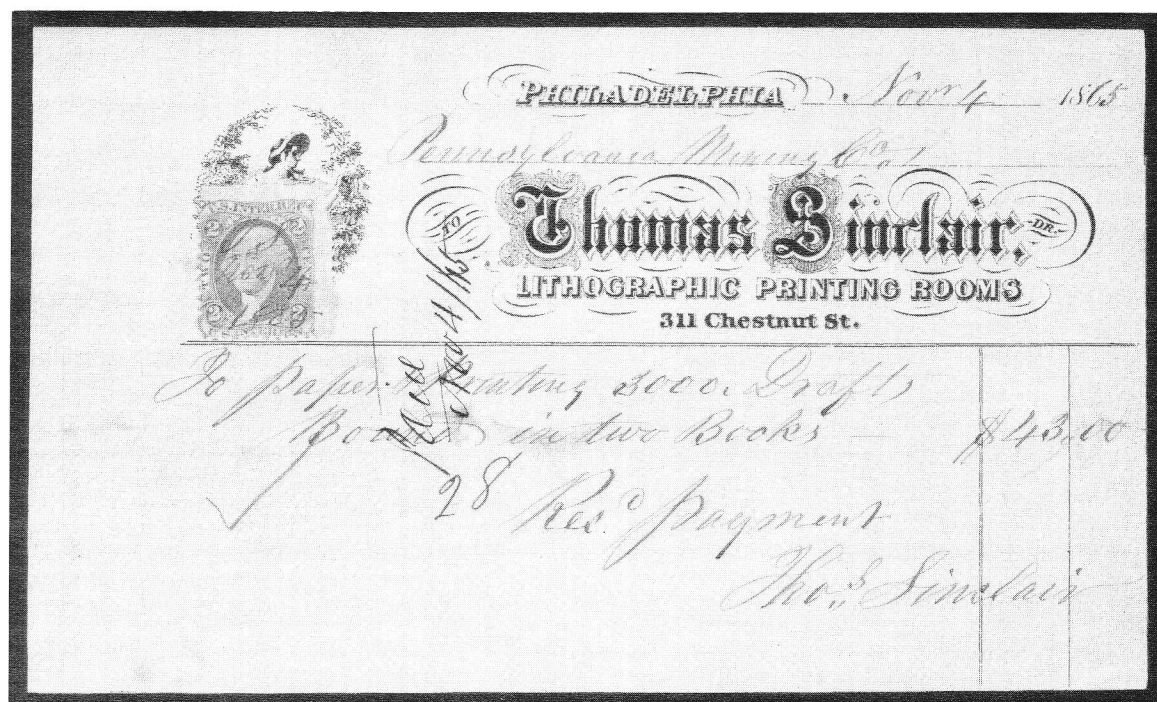 PHILADELPHIA Novr 4 1865
Pennsylvania Mining Co.
TO Thomas Sinclair. DR.
LITHOGRAPHIC PRINTING ROOMS
311 Chestnut St.
U.S. INTER. REV.
2 2
Nov 4
2 2
1865
To paper & printing 3000. Drafts
Bound in two Books $43.00
Recd. payment
Thos. Sinclair
Paid
Nov 4/65
28